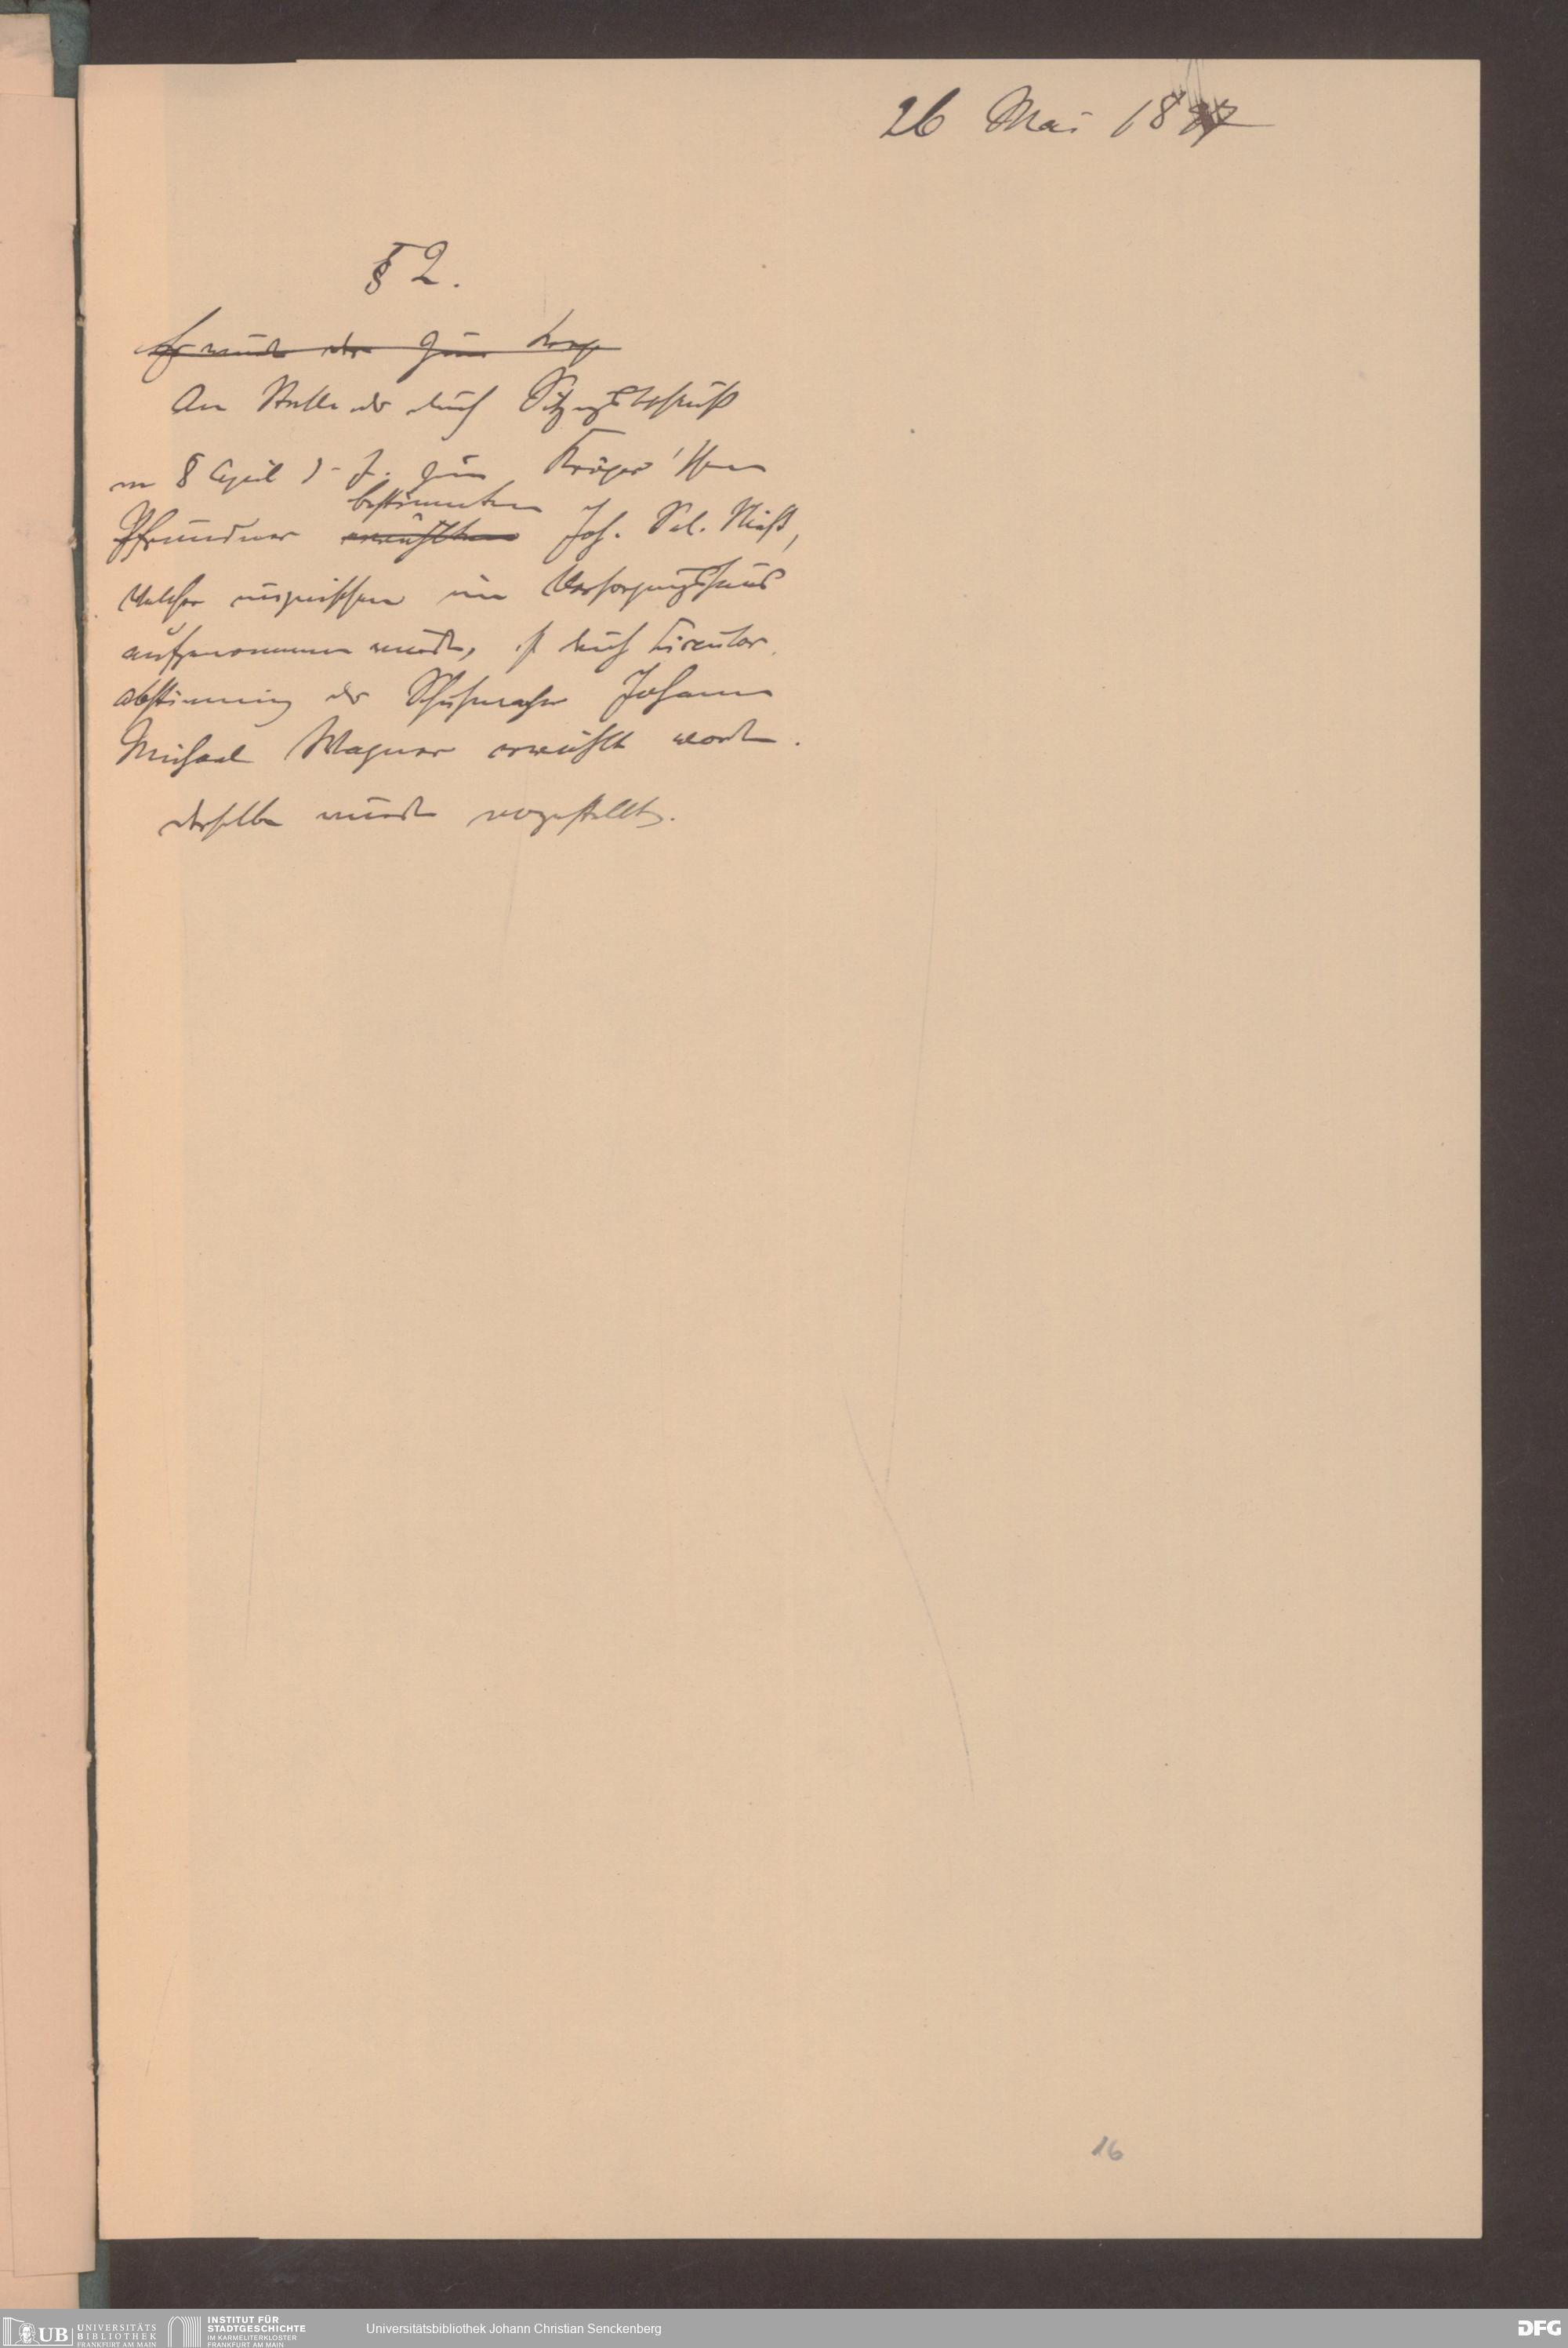 26 Mai 1897
§ 2.
Es wurde der zum
An Stelle des durch Sitzungsbeschluß
vom 8 April d. J. zum Krüger'schen
bestimmten
Pfründner erwählten Joh. Val. Nieß,
welcher inzwischen im Versorgungshaus
aufgenommen wurde, ist durch Circular-
abstimmung der Schuhmacher Johann
Michael Wagner erwählt worden.
derselbe wurde vorgestellt.
16
UB UNIVERSITÄTS BIBLIOTHEK FRANKFURT AM MAIN
INSTITUT FÜR STADTGESCHICHTE IM KARMELITERKLOSTER FRANKFURT AM MAIN
Universitätsbibliothek Johann Christian Senckenberg
DFG